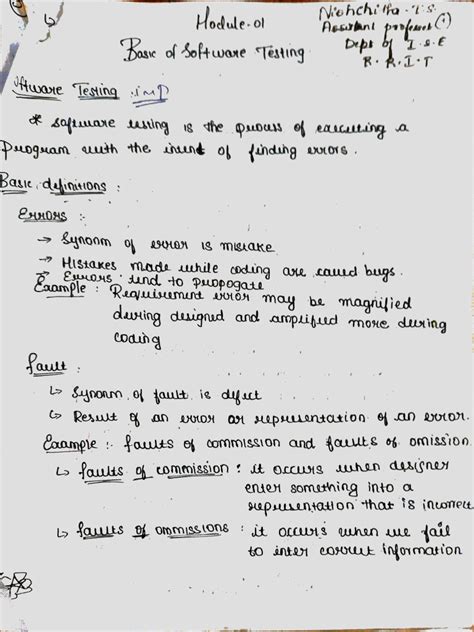 Module-01
Nishchitha. T.S.
Assistant professor
Dept of I.S.E
R.R.I.T
Basic of Software Testing
Software Testing imp
* software testing is the process of executing a
program with the intent of finding errors.
Basic definitions :
Errors :-
→ Synonm of error is mistake
→ Mistakes made while coding are called bugs.
→ Errors tend to propogate
Example : Requirement error may be magnified
during designed and amplified more during
coding
fault :
↳ Synonm of fault is defect
↳ Result of an error or representation of an error.
Example :- faults of commission and faults of omission.
↳ faults of commission : it occurs when designer
enter something into a
representation that is incorrect
↳ faults of ommissions : it occurs when we fail
to inter correct information